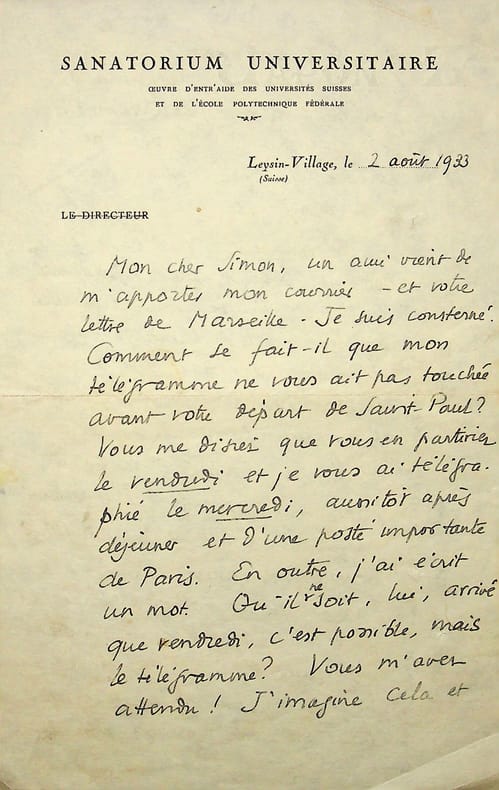 SANATORIUM UNIVERSITAIRE
ŒUVRE D'ENTR'AIDE DES UNIVERSITÉS SUISSES
ET DE L'ÉCOLE POLYTECHNIQUE FÉDÉRALE
Leysin-Village, le 2 août 1933
(Suisse)
LE DIRECTEUR
Mon cher Simon, un ami vient de
m'apporter mon courrier - et votre
lettre de Marseille. Je suis consterné.
Comment se fait-il que mon
télégramme ne vous ait pas touchée
avant votre départ de Saint Paul?
Vous me disiez que vous en partiriez
le vendredi et je vous ai télégra-
phié le mercredi, aussitôt après
déjeuner et d'une poste importante
de Paris. En outre, j'ai écrit
un mot. Qu'il ne soit, lui, arrivé
que vendredi, c'est possible, mais
le télégramme? Vous m'avez
attendu! J'imagine cela et